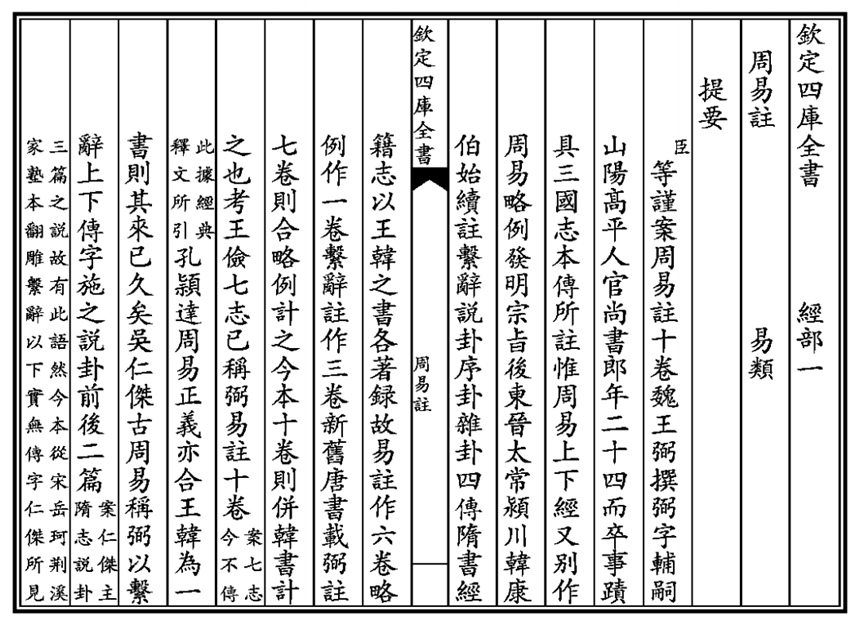 欽定四庫全書 經部一
周易註 易類
提要
臣等謹案周易註十卷魏王弼撰弼字輔嗣
山陽高平人官尚書郎年二十四而卒事蹟
具三國志本傳所註惟周易上下經又別作
周易略例發明宗旨後東晉太常潁川韓康
伯始續註繫辭説卦序卦雜卦四傳隋書經
欽定四庫全書 周易註
籍志以王韓之書各著録故易註作六卷略
例作一卷繫辭註作三卷新舊唐書載弼註
七卷則合略例計之今本十卷則併韓書計
之也考王儉七志已稱弼易註十卷案七志今不傳
此據經典釋文所引孔穎達周易正義亦合王韓為一
書則其來已久矣吳仁傑古周易稱弼以繫
辭上下傳字施之説卦前後二篇案仁傑主隋志説卦
三篇之説故有此語然今本從宋岳珂荆溪
家塾本翻雕繫辭以下實無傳字仁傑所見